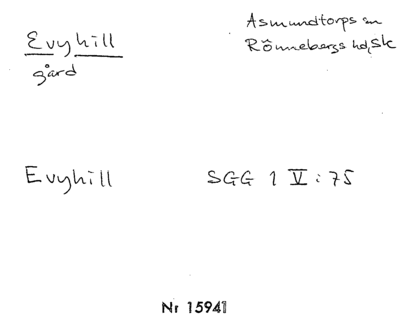 Evyhill
gård
Asmundtorps sn
Rönnebergs hd, Sk
Evyhill SGG 1 V : 75
Nr 15941